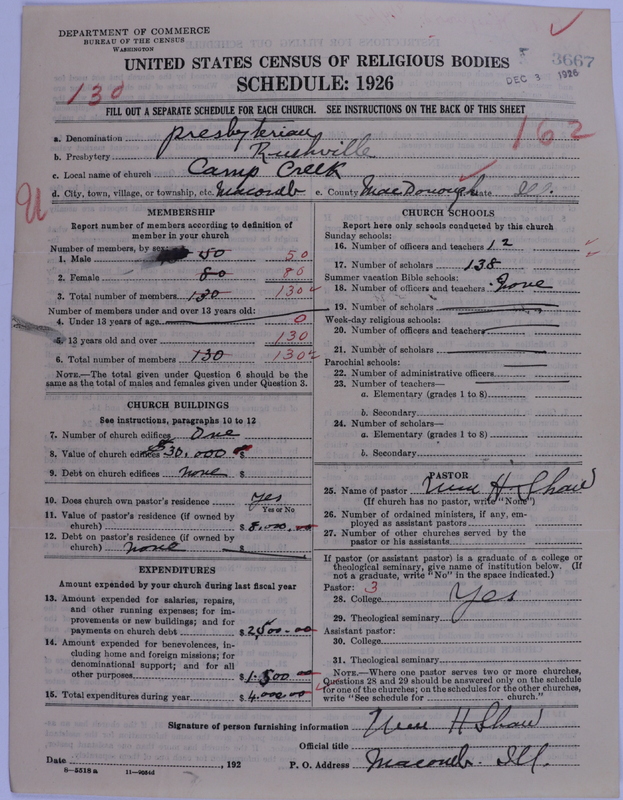 DEPARTMENT OF COMMERCE
BUREAU OF THE CENSUS
WASHINGTON
UNITED STATES CENSUS OF RELIGIOUS BODIES
3667
SCHEDULE: 1926
DEC 3 1926
130
FILL OUT A SEPARATE SCHEDULE FOR EACH CHURCH. SEE INSTRUCTIONS ON THE BACK OF THIS SHEET
162
a. Denomination Presbyterian
b. Presbytery Rushville
c. Local name of church Camp Creek
d. City, town, village, or township, etc. Macomb e. County MacDonough State Ill.
MEMBERSHIP
Report number of members according to definition of member in your church
Number of members, by sex:
1. Male 50 50
2. Female 80 80
3. Total number of members 130 130
Number of members under and over 13 years old:
4. Under 13 years of age 0
5. 13 years old and over 130
6. Total number of members 130 130
NOTE.—The total given under Question 6 should be the same as the total of males and females given under Question 3.
CHURCH BUILDINGS
See instructions, paragraphs 10 to 12
7. Number of church edifices One
8. Value of church edifices $ 30,000
9. Debt on church edifices none $
10. Does church own pastor's residence Yes
Yes or No
11. Value of pastor's residence (if owned by church) $ 8,000.00
12. Debt on pastor's residence (if owned by church) none $
EXPENDITURES
Amount expended by your church during last fiscal year
13. Amount expended for salaries, repairs, and other running expenses; for improvements or new buildings; and for payments on church debt $ 2500.00
14. Amount expended for benevolences, including home and foreign missions; for denominational support; and for all other purposes $ 1.500.00
15. Total expenditures during year $ 4.000.00
CHURCH SCHOOLS
Report here only schools conducted by this church
Sunday schools:
16. Number of officers and teachers 12
17. Number of scholars 138
Summer vacation Bible schools:
18. Number of officers and teachers None
19. Number of scholars
Week-day religious schools:
20. Number of officers and teachers
21. Number of scholars
Parochial schools:
22. Number of administrative officers
23. Number of teachers—
a. Elementary (grades 1 to 8)
b. Secondary
24. Number of scholars—
a. Elementary (grades 1 to 8)
b. Secondary
PASTOR
25. Name of pastor Wm H Shaw
(If church has no pastor, write "None")
26. Number of ordained ministers, if any, employed as assistant pastors
27. Number of other churches served by the pastor or his assistants
If pastor (or assistant pastor) is a graduate of a college or theological seminary, give name of institution below. (If not a graduate, write "No" in the space indicated.)
Pastor: 3
28. College Yes
29. Theological seminary
Assistant pastor:
30. College
31. Theological seminary
NOTE.—Where one pastor serves two or more churches, Questions 28 and 29 should be answered only on the schedule for one of the churches; on the schedules for the other churches, write "See schedule for church."
Signature of person furnishing information Wm H Shaw
Official title
Date , 192 P. O. Address Macomb. Ill.
8—5518 a